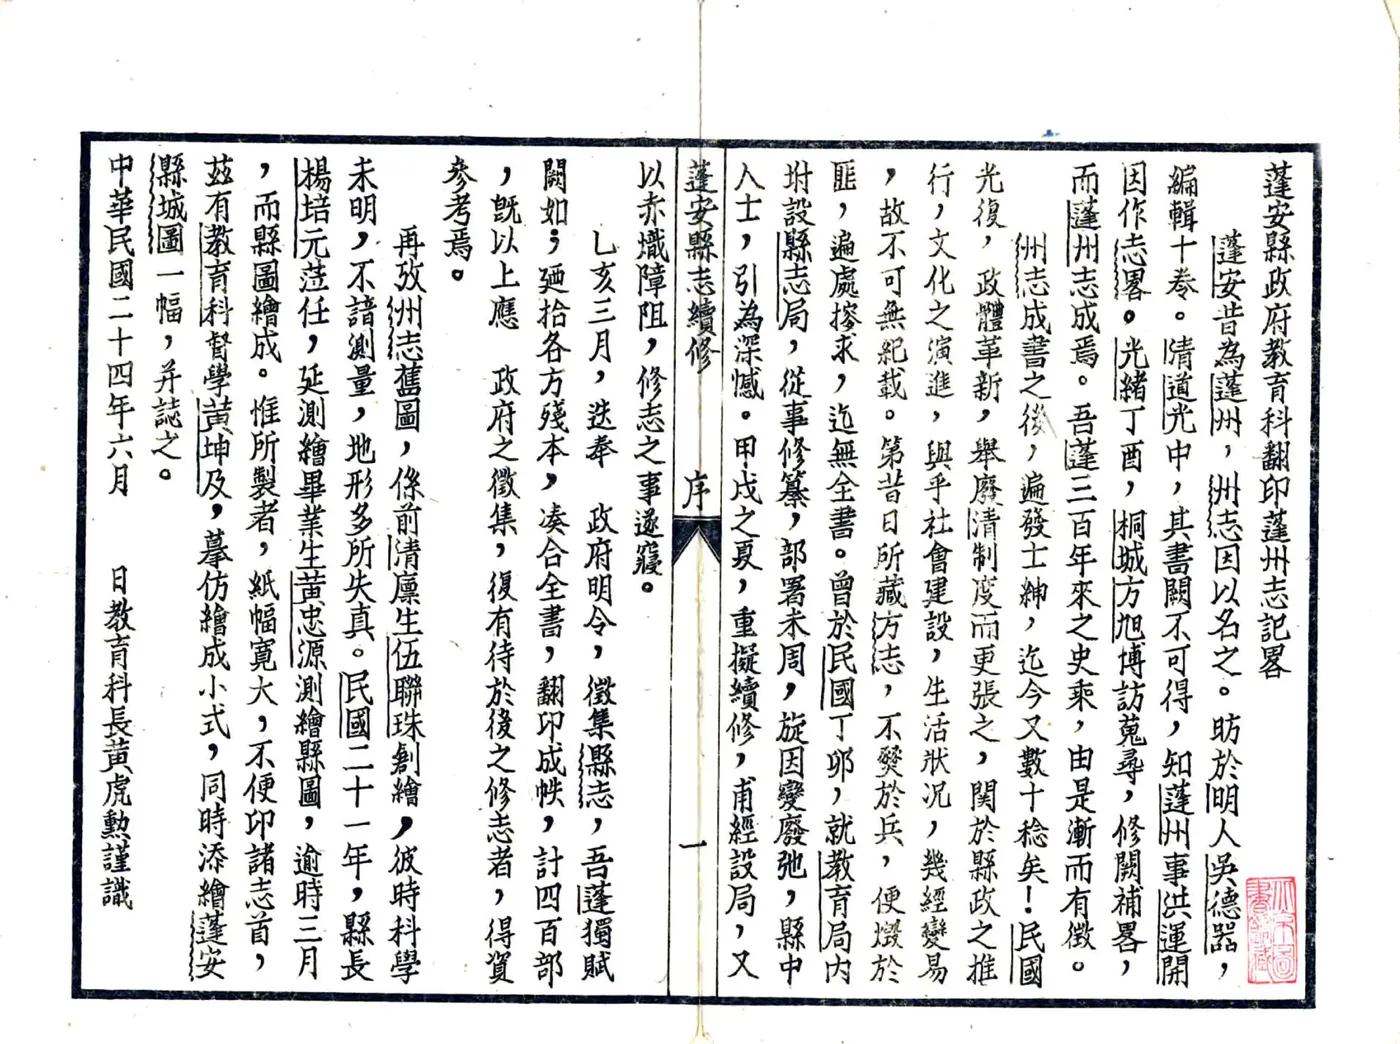 蓬安縣政府教育科翻印蓬州志記畧
蓬安昔為蓬州，州志因以名之。昉於明人吳德器，
編輯十卷。清道光中，其書闕不可得，知蓬州事洪運開
因作志畧。光緒丁酉，桐城方旭博訪蒐尋，修闕補畧，
而蓬州志成焉。吾蓬三百年來之史乘，由是漸而有徵。
州志成書之後，遍發士紳，迄今又數十稔矣！民國
光復，政體革新，舉廢清制度而更張之，関於縣政之推
行，文化之演進，與乎社會建設，生活狀况，幾經變易
，故不可無紀載。第昔日所藏方志，不燹於兵，便燬於
匪，遍處搜求，迄無全書。曾於民國丁卯，就教育局內
坿設縣志局，從事修纂，部署未周，旋因變廢弛，縣中
人士，引為深憾。甲戌之夏，重擬續修，甫經設局，又
蓬安縣志續修 序 一
以赤熾障阻，修志之事遂寢。
乙亥三月，迭奉 政府明令，徵集縣志，吾蓬獨賦
闕如；廼拾各方殘本，凑合全書，翻印成帙，計四百部
，旣以上應 政府之徵集，復有待於後之修志者，得資
參考焉。
再攷州志舊圖，係前清廩生伍聯珠創繪，彼時科學
未明，不諳測量，地形多所失真。民國二十一年，縣長
楊培元蒞任，延測繪畢業生黃忠源測繪縣圖，逾時三月
，而縣圖繪成。惟所製者，紙幅寬大，不便印諸志首，
茲有教育科督學黃坤及，摹仿繪成小式，同時添繪蓬安
縣城圖一幅，并誌之。
中華民國二十四年六月 日教育科長黃虎勲謹識